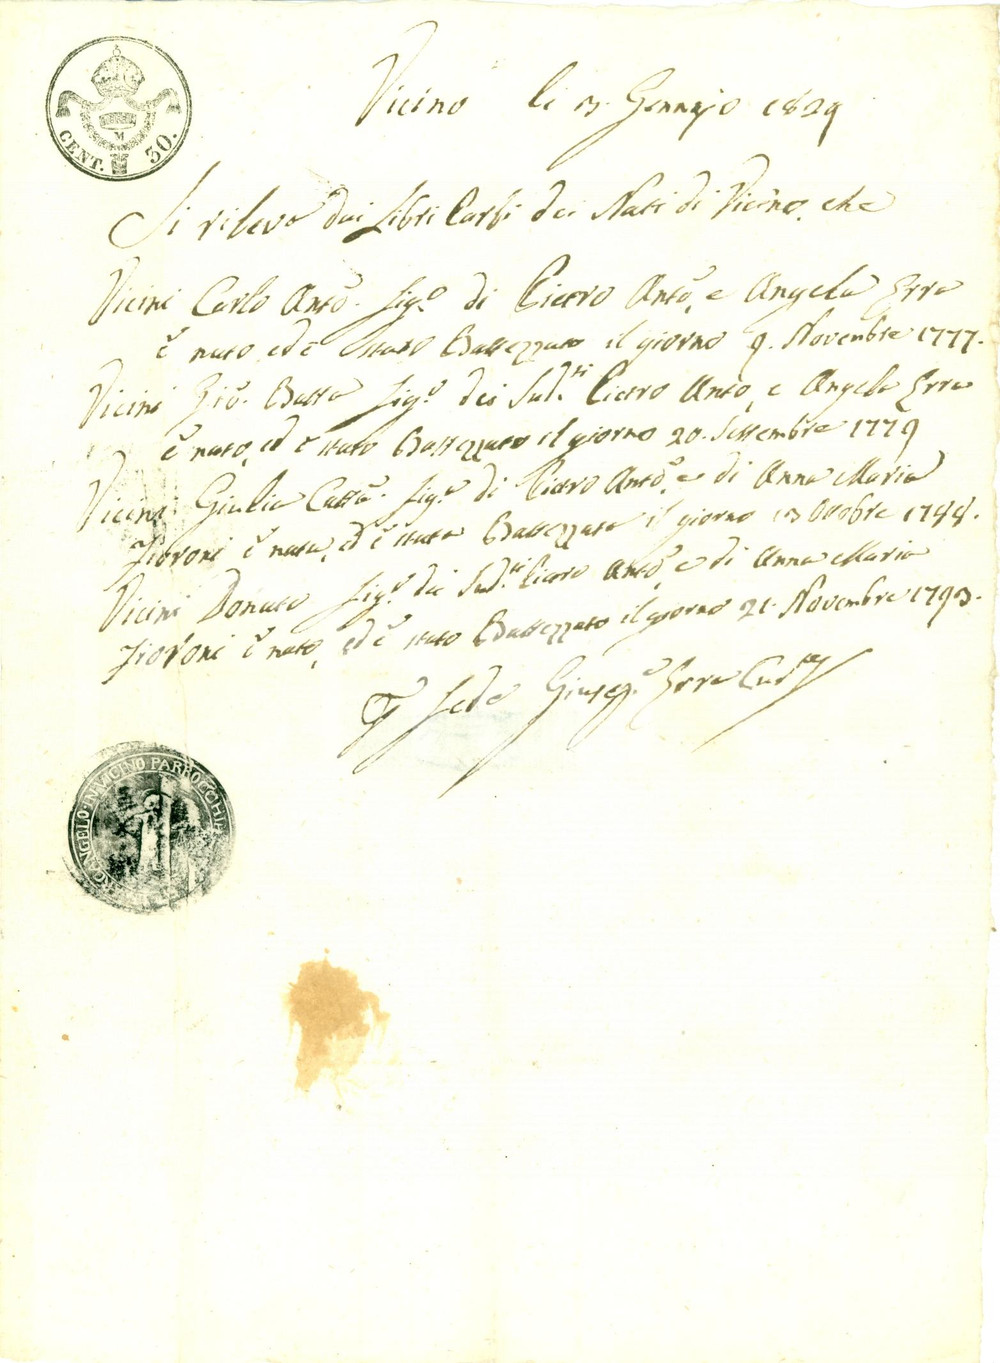 CENT. 30.
M
Vicino li 3. Gennajo 1829
Si rileva dai Libri Battesi dei Nati di Vicino, che
Vicini Carlo Antō. figº. di Pietro Antō, e Angela Erra
è nato, ed è stato Battezzato il giorno 9. Novembre 1777.
Vicini Giō. Batta figº. dei Sudti. Pietro Antō, e Angela Erra
è nato, ed è stato Battezzato il giorno 20. Settembre 1779
Vicini Giulia Cattā. figª. di Pietro Antō, e di Anna Maria
Fioroni è nata, ed è stata Battezzata il giorno 13 Ottobre 1788.
Vicini Donato figº. dei Sudti. Pietro Antō, e di Anna Maria
Fioroni è nato, ed è stato Battezzato il giorno 21. Novembre 1793.
In fede Giusepe. Erra
ARCANGELO IN VICINO PARROCCHIA